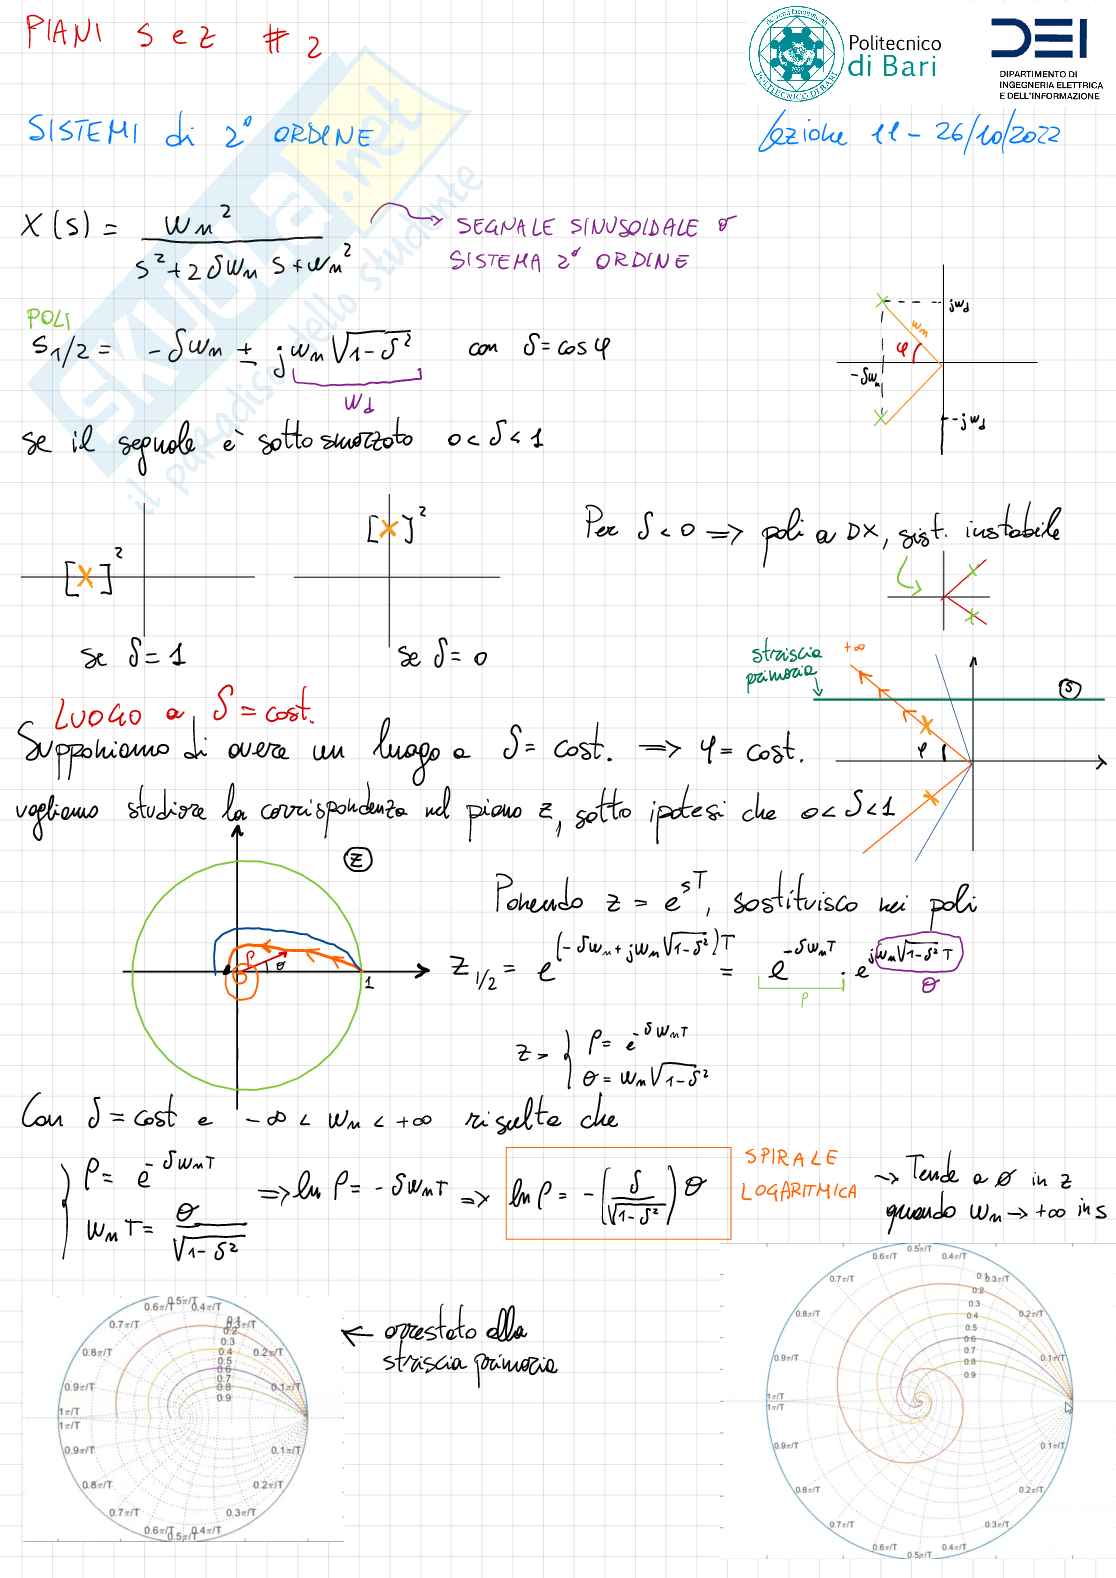 PIANI S e Z # 2
Politecnico
di Bari
DEI
DIPARTIMENTO DI
INGEGNERIA ELETTRICA
E DELL'INFORMAZIONE
POLITECNICO DI BARI
SISTEMI di 2° ORDINE
Lezione 11 - 26/10/2022
SKUOLA.net
il paradiso dello studente
X(s) = ωn² / (s² + 2δωn s + ωn²)
SEGNALE SINUSOIDALE o
SISTEMA 2° ORDINE
POLI
s1/2 = -δωn ± jωn√(1-δ²) con δ = cos φ
ωd
jωd
ωn
φ
-δωn
-jωd
se il segnale è sottosmorzato 0 < δ < 1
[X]²
[X]²
Per δ < 0 => poli a DX, sist. instabile
se δ = 1
se δ = 0
striscia
primaria
+∞
S
φ
LUOGO a δ = cost.
Supponiamo di avere un luogo a δ = cost. => φ = cost.
vogliamo studiare la corrispondenza nel piano z, sotto ipotesi che 0 < δ < 1
Z
ρ
θ
1
Ponendo z = e^sT, sostituisco nei poli
Z1/2 = e^(-δωn + jωn√(1-δ²))T = e^-δωnT · e^jωn√(1-δ²)T
ρ
θ
z = { ρ = e^-δωnT
θ = ωn√(1-δ²)
Con δ = cost e -∞ < ωn < +∞ risulta che
{ ρ = e^-δωnT
ωnT = θ / √(1-δ²)
=> ln ρ = -δωnT => ln ρ = -(δ / √(1-δ²)) θ
SPIRALE
LOGARITMICA
→ Tende a 0 in z
quando ωn → +∞ in s
← arrestato alla
striscia primaria
0.5π/T
0.6π/T
0.4π/T
0.7π/T
0.3π/T
0.8π/T
0.2π/T
0.9π/T
0.1π/T
1π/T
1π/T
0.9π/T
0.1π/T
0.8π/T
0.2π/T
0.7π/T
0.3π/T
0.6π/T
0.4π/T
0.5π/T
0.1
0.2
0.3
0.4
0.5
0.6
0.7
0.8
0.9
0.5π/T
0.6π/T
0.4π/T
0.7π/T
0.3π/T
0.8π/T
0.2π/T
0.9π/T
0.1π/T
1π/T
1π/T
0.9π/T
0.1π/T
0.8π/T
0.2π/T
0.7π/T
0.3π/T
0.6π/T
0.4π/T
0.5π/T
0.1
0.2
0.3
0.4
0.5
0.6
0.7
0.8
0.9